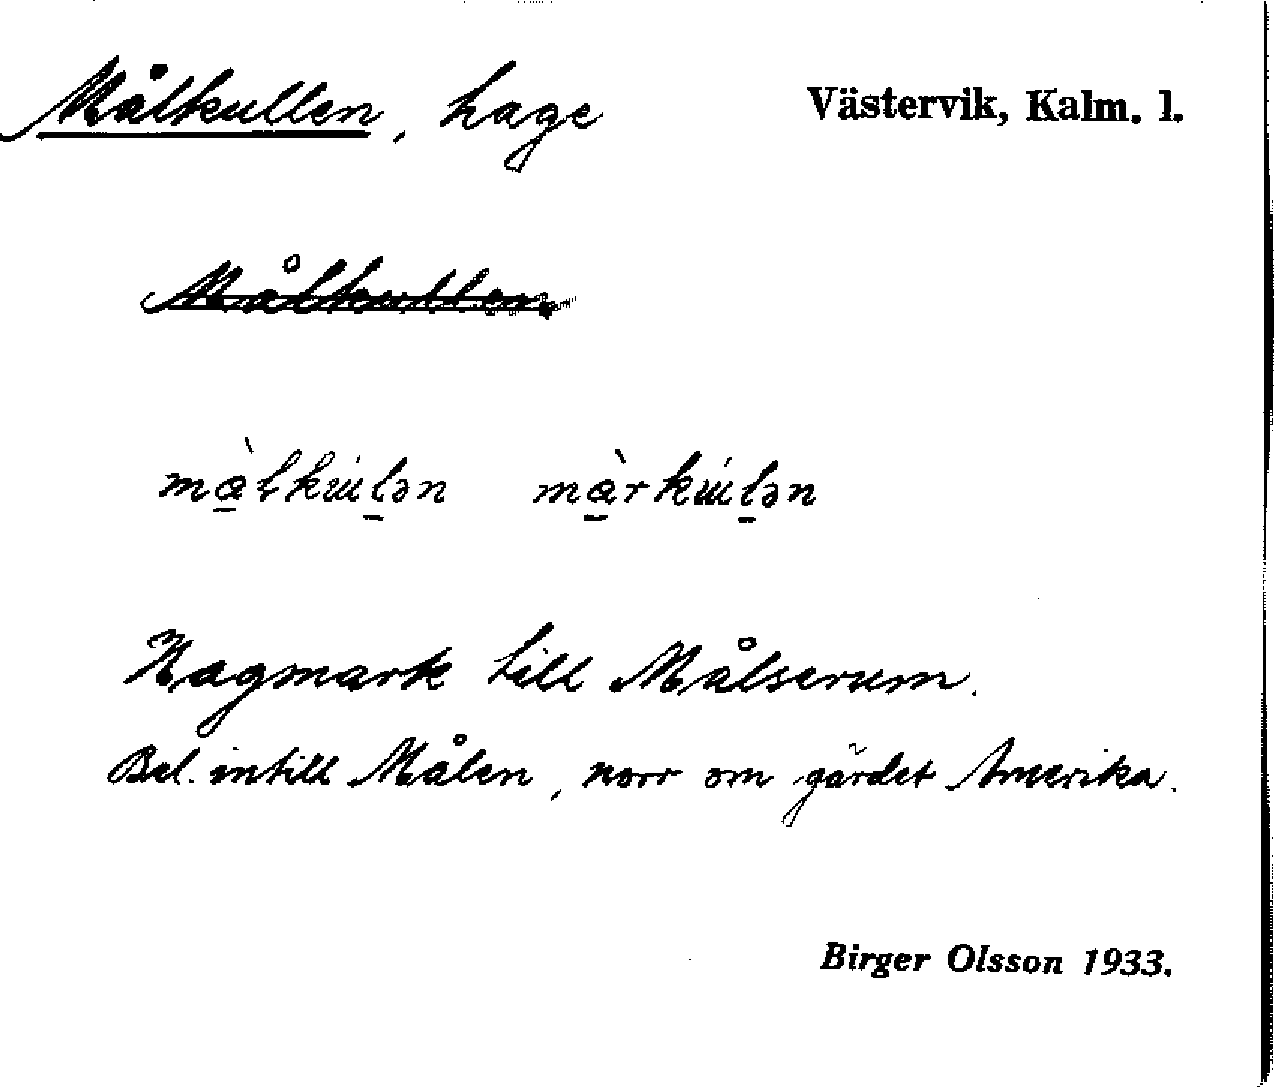 Målkullen, hage Västervik, Kalm. l.
Målkullen
Hagmark till Målserum.
Bel. intill Målen, norr om gärdet Amerika.
Birger Olsson 1933.